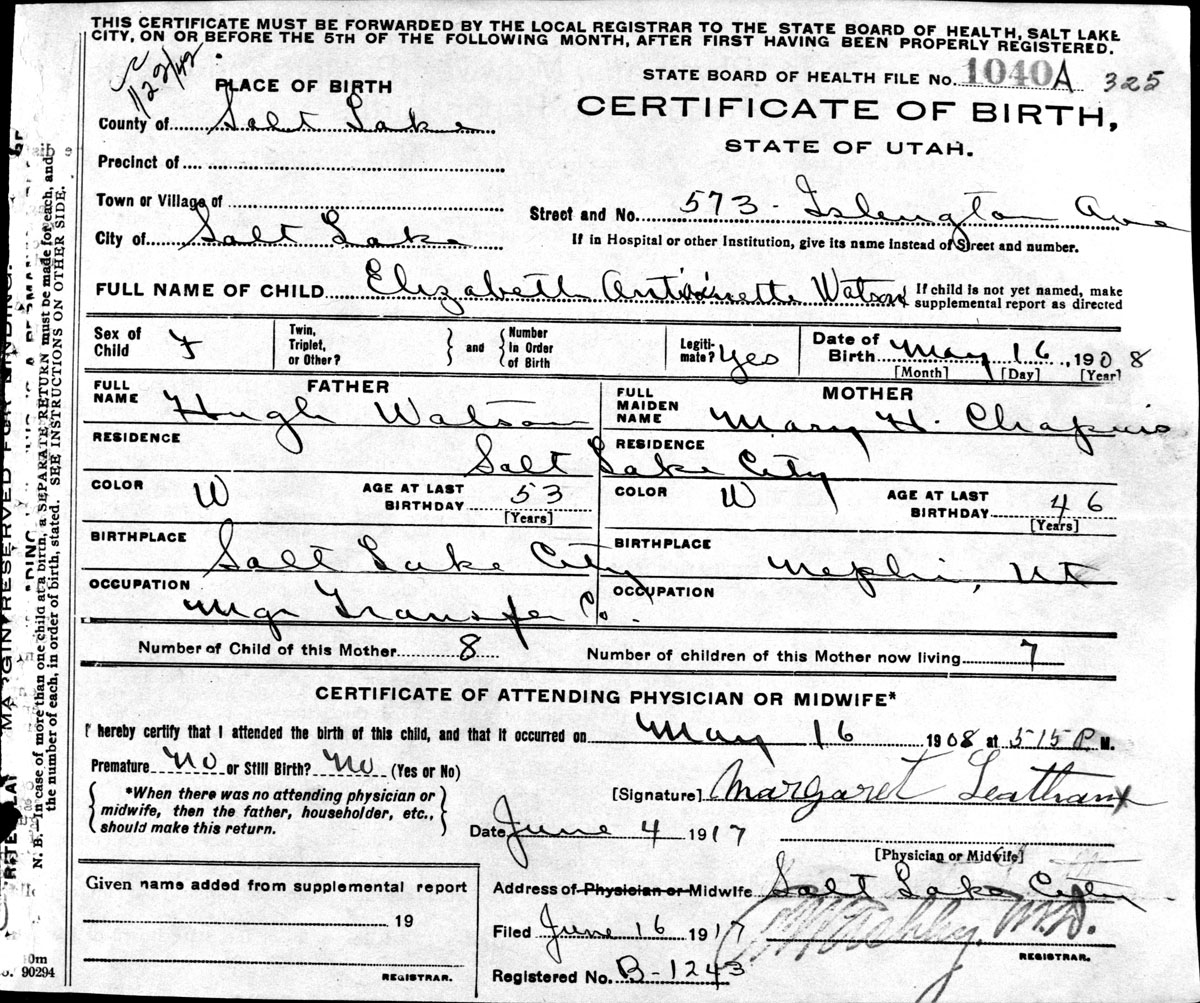 THIS CERTIFICATE MUST BE FORWARDED BY THE LOCAL REGISTRAR TO THE STATE BOARD OF HEALTH, SALT LAKE
CITY, ON OR BEFORE THE 5TH OF THE FOLLOWING MONTH, AFTER FIRST HAVING BEEN PROPERLY REGISTERED.
STATE BOARD OF HEALTH FILE No. 1040A 325
PLACE OF BIRTH
CERTIFICATE OF BIRTH,
STATE OF UTAH.
County of Salt Lake
Precinct of
Town or Village of
Street and No. 573 - Islington Ave
City of Salt Lake
If in Hospital or other Institution, give its name instead of Street and number.
FULL NAME OF CHILD Elizabeth Antoinette Watson If child is not yet named, make
supplemental report as directed
Sex of Child F Twin, Triplet, or Other? and Number in Order of Birth Legiti-mate? Yes Date of Birth May 16, 1908
[Month] [Day] [Year]
FATHER MOTHER
FULL NAME Hugh Watson FULL MAIDEN NAME Mary H. Chapuis
RESIDENCE RESIDENCE
Salt Lake City
COLOR W AGE AT LAST BIRTHDAY 53 COLOR W AGE AT LAST BIRTHDAY 46
[Years] [Years]
BIRTHPLACE Salt Lake City BIRTHPLACE Nephi, Ut
OCCUPATION Mgr Transfer Co. OCCUPATION
Number of Child of this Mother 8 Number of children of this Mother now living 7
CERTIFICATE OF ATTENDING PHYSICIAN OR MIDWIFE*
I hereby certify that I attended the birth of this child, and that it occurred on May 16 1908 at 515 P M.
Premature No or Still Birth? No (Yes or No)
*When there was no attending physician or
midwife, then the father, householder, etc.,
should make this return.
[Signature] Margaret Leatham
Date June 4 1917
[Physician or Midwife]
Given name added from supplemental report
19
REGISTRAR.
Address of Physician or Midwife Salt Lake City
Filed June 16 1917 M.D.
REGISTRAR.
Registered No. B-1243
N. B.—In case of more than one child at a birth, a SEPARATE RETURN must be made for each, and
the number of each, in order of birth, stated. SEE INSTRUCTIONS ON OTHER SIDE.
90294